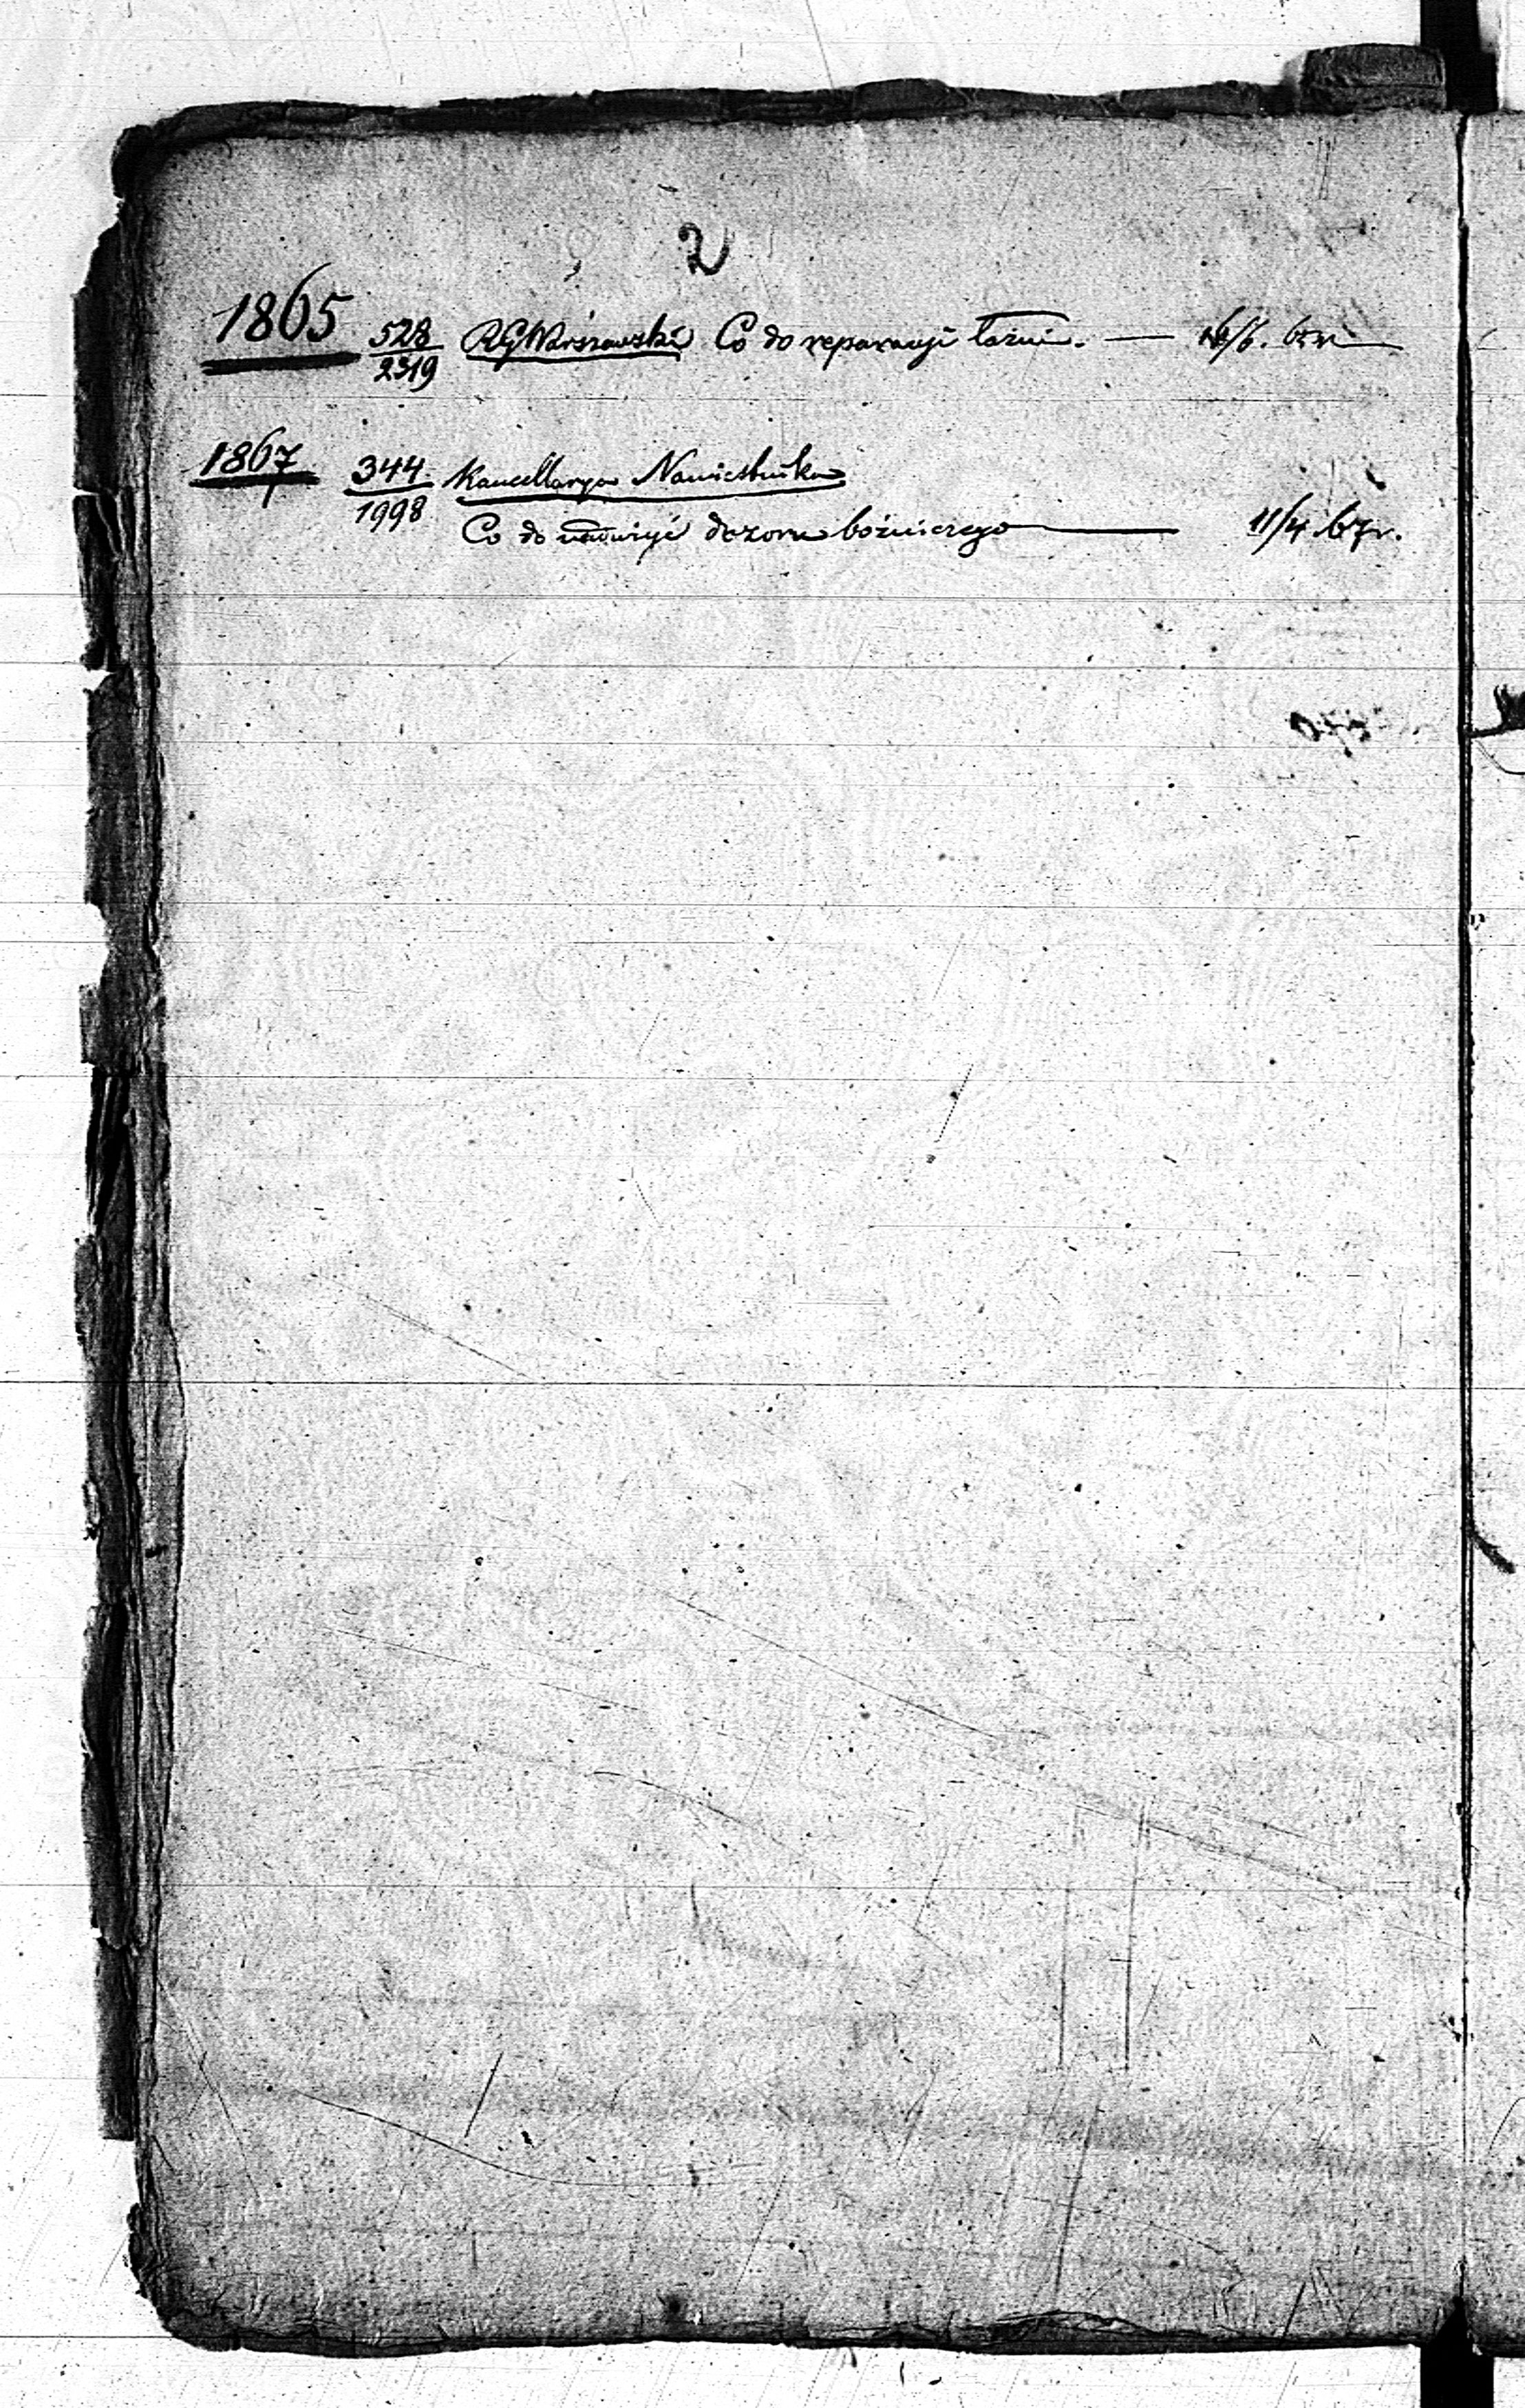 2
1865 528/2319 RGWarszawski Co do reparacyi łaźni. — /6. 65 r
1867 344/1998 Kancellarya Namiestnika
Co do dozoru bóżniczego — 11/4 67 r.